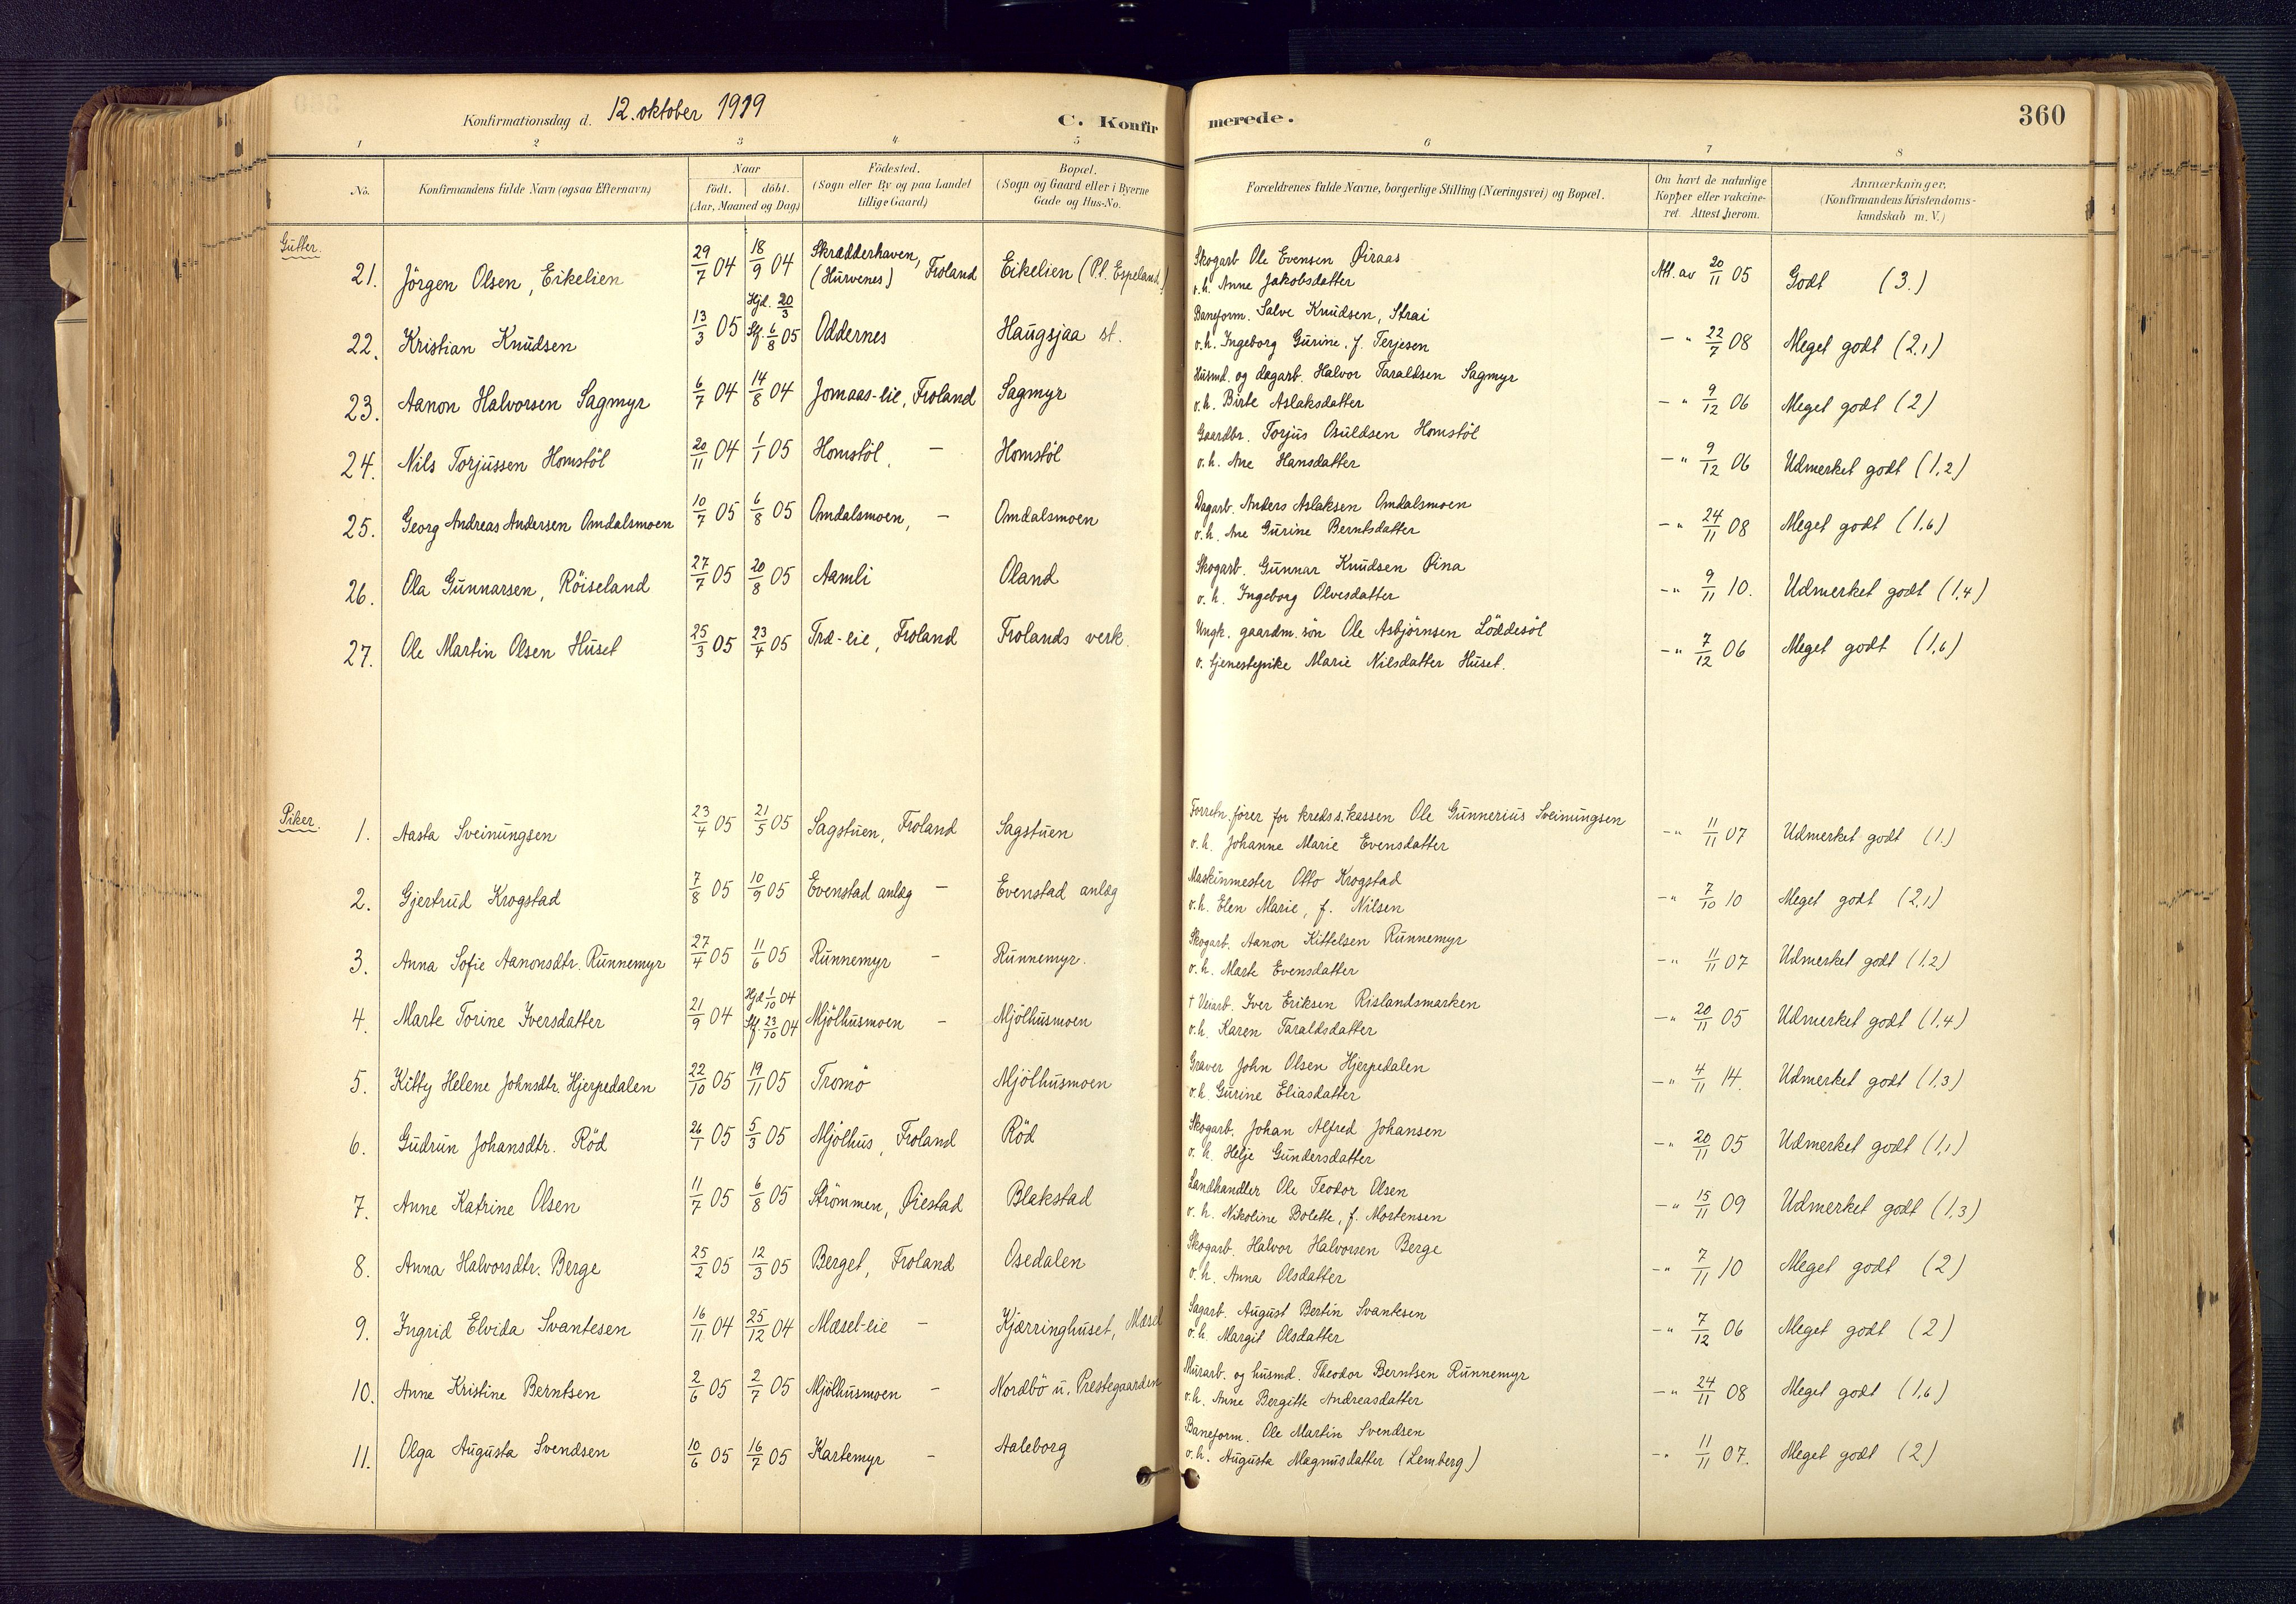 Konfirmationsdag d. 12. oktober 1919
C. Konfirmerede.
360
1 2 3 4 5 6 7 8
No.
Konfirmandens fulde Navn (ogsaa Efternavn)
Naar
födt. döbt.
(Aar, Maaned og Dag)
Födested.
(Sogn eller By og paa Landet
tillige Gaard)
Bopæl.
(Sogn og Gaard eller i Byerne
Gade og Hus-No.
Forældrenes fulde Navne, borgerlige Stilling (Næringsvei) og Bopæl.
Om havt de naturlige
Kopper eller vakcine-
ret. Attest herom.
Anmærkninger.
(Konfirmandens Kristendoms-
kundskab m. V.)
Gutter.
21. Jörgen Olsen, Eikelien 29/7 04 18/9 04 Skrædderhaven, (Hurvenes) Froland Eikelien (Pl. Espeland) Skogarb Ole Evensen Öiraas
o.h. Anne Jakobsdatter Att. av 20/11 05 Godt (3.)
22. Kristian Knudsen 13/3 05 Hjd. 20/3 Stf. 6/8 05 Oddernes Haugsjaa st. Baneform. Salve Knudsen, Strai
o.h. Ingeborg Gurine, f. Terjesen - " 22/7 08 Meget godt (2,1)
23. Aanon Halvorsen Sagmyr 6/7 04 14/8 04 Jomaas-eie, Froland Sagmyr Husmd. og dagarb. Halvor Taraldsen Sagmyr
o.h. Birte Aslaksdatter - " 9/12 06 Meget godt (2)
24. Nils Torjussen Homstöl 20/11 04 1/1 05 Homstöl, - Homstöl Gaardbr. Torjus Osuldsen Homstöl
o.h. Ane Hansdatter - " 9/12 06 Udmerket godt (1,2)
25. Georg Andreas Andersen Omdalsmoen 10/7 05 6/8 05 Omdalsmoen, - Omdalsmoen Dagarb. Anders Aslaksen Omdalsmoen
o.h. Ane Gurine Berntsdatter - " 24/11 08 Meget godt (1,6)
26. Ola Gunnarsen, Röiseland 27/7 05 20/8 05 Aamli Oland Skogarb. Gunnar Knudsen Öina
o.h. Ingeborg Olvesdatter - " 9/11 10. Udmerket godt (1,4)
27. Ole Martin Olsen Huset 25/3 05 23/4 05 Træ-eie, Froland Frolands verk. Ungk. gaardm. sön Ole Asbjörnsen Löddesöl
o. tjenestepike Marie Nilsdatter Huset. - " 7/12 06 Meget godt (1,6)
Piker.
1. Aasta Sveinungsen 23/4 05 21/5 05 Sagstuen, Froland Sagstuen Forretn. förer for kreds s. kassen Ole Gunnerius Sveinungsen
o.h. Johanne Marie Evensdatter - " 11/11 07 Udmerket godt (1.)
2. Gjertrud Krogstad 7/8 05 10/9 05 Evenstad anlæg - Evenstad anlæg Maskinmester Otto Krogstad
o.h. Elen Marie, f. Nilsen - " 7/10 10 Meget godt (2,1)
3. Anna Sofie Aanonsdtr. Runnemyr 27/4 05 11/6 05 Runnemyr - Runnemyr. Skogarb. Aanon Kittelsen Runnemyr
o.h. Marte Evensdatter - " 11/11 07 Udmerket godt (1,2)
4. Marte Torine Iversdatter 21/9 04 Hjd 1/10 04 Stf. 23/10 04 Mjölhusmoen - Mjölhusmoen † Veiarb. Iver Eriksen Rislandsmarken
o.h. Karen Taraldsdatter - " 20/11 05 Udmerket godt (1,4)
5. Kitty Helene Johnsdtr. Hjerpedalen 22/10 05 19/11 05 Tromö Mjölhusmoen Graver John Olsen Hjerpedalen
o.h. Gurine Eliasdatter - " 4/11 14. Udmerket godt (1,3)
6. Gudrun Johansdtr. Röd 26/1 05 5/3 05 Mjölhus, Froland Röd Skogarb. Johan Alfred Johansen
o.h. Helje Gundersdatter - " 20/11 05 Udmerket godt (1,1)
7. Anne Katrine Olsen 11/7 05 6/8 05 Strömmen, Öiestad Blakstad Landhandler Ole Teodor Olsen
o.h. Nikoline Bolette, f. Mortensen - " 15/11 09 Udmerket godt (1,3)
8. Anna Halvorsdtr. Berge 25/2 05 12/3 05 Berget, Froland Osedalen Skogarb. Halvor Halvorsen Berge
o.h. Anna Olsdatter - " 7/11 10 Meget godt (2)
9. Ingrid Elvida Svantesen 16/11 04 25/12 04 Mæsel-eie - Kjærringhuset, Mæsel Sagarb. August Bertin Svantesen
o.h. Margit Olsdatter - " 7/12 06 Meget godt (2)
10. Anne Kristine Berntsen 2/6 05 2/7 05 Mjölhusmoen - Nordbö u. Prestegaarden Murarb. og husmd. Theodor Berntsen Runnemyr
o.h. Anne Bergitte Andreasdatter - " 24/11 08 Meget godt (1,6)
11. Olga Augusta Svendsen 10/6 05 16/7 05 Kartemyr - Aaleborg Baneform. Ole Martin Svendsen
o.h. Augusta Magnusdatter (Lemberg) - " 11/11 07. Meget godt (2)